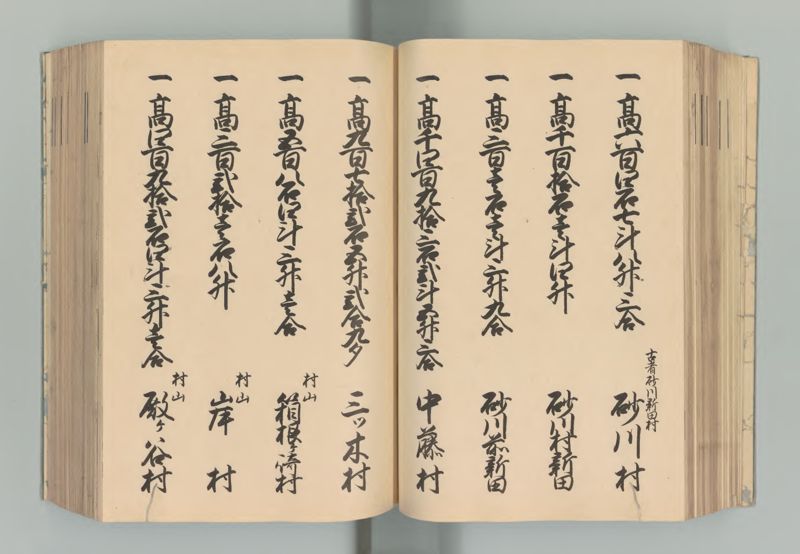 一 高六百四石七斗八升三合
古者砂川新田村
砂川村
一 高千百拾石壱斗四升
砂川村新田
一 高三百壱石壱斗三升九合
砂川前新田
一 高千四百九拾三石弐斗五升六合
中藤村
一 高九百七拾弐石五升弐合九夕
三ツ木村
一 高五百八石四斗三升壱合
村山
箱根ヶ崎村
一 高三百弐拾壱石八升
村山
岸村
一 高四百九拾弐石四斗三升壱合
村山
殿ヶ谷村